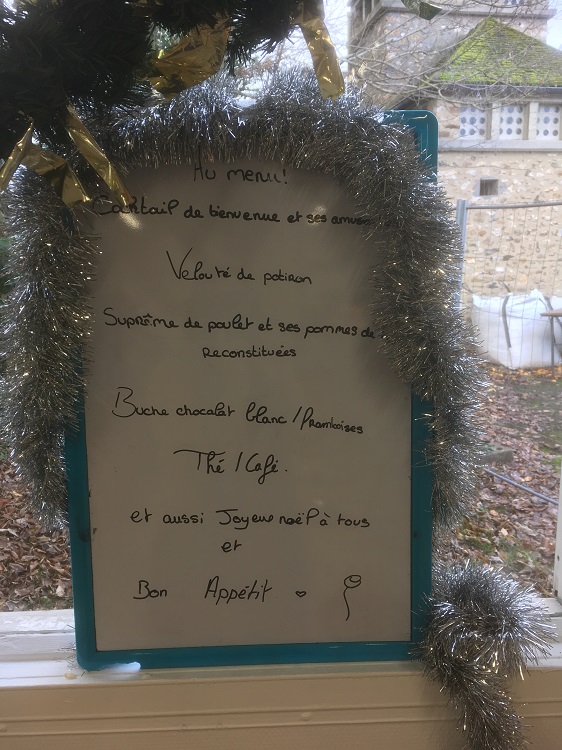 Au menu!
Cocktail de bienvenue et ses
Velouté de potiron
Suprême de poulet et ses pommes de
reconstituées
Buche chocolat blanc / framboises
Thé / Café.
et aussi Joyeux noël à tous
et
Bon Appétit